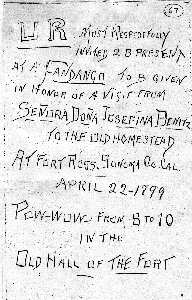 67
U R MOST RESPECTFULLY
INVITED 2 B PRESENT
AT A FANDANGO TO B GIVEN
IN HONOR OF A VISIT FROM
SEÑORA DOÑA JOSEFINA BENITZ
TO THE OLD HOMESTEAD
AT FORT ROSS, SONOMA CO. CAL
APRIL 22-1899
POW-WOW FROM 8 TO 10
IN THE
OLD HALL OF THE FORT